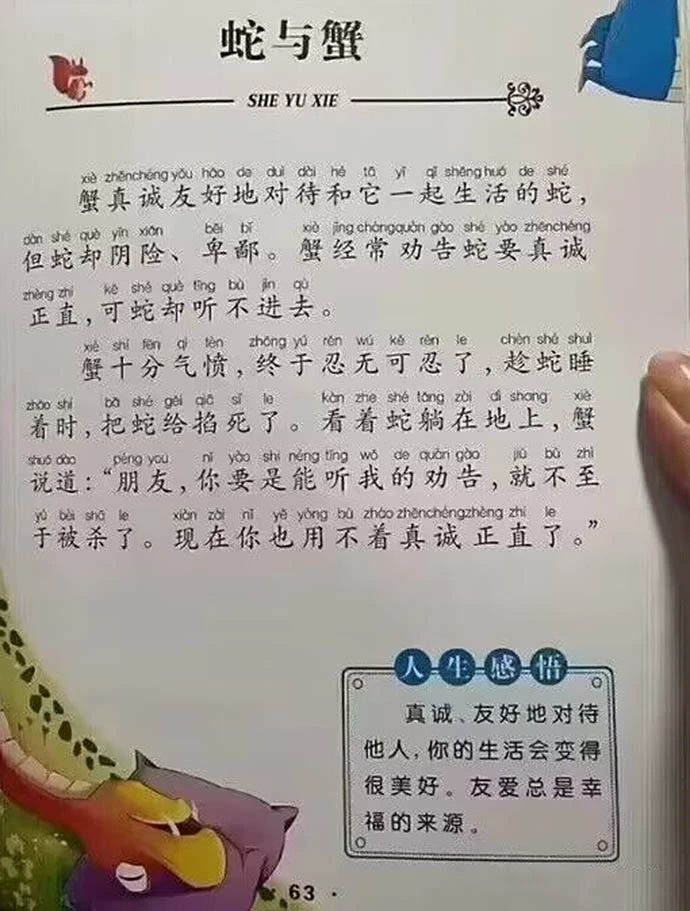 蛇与蟹
SHE YU XIE
xiè zhēnchéng yǒu hǎo de duì dài hé tā yī qǐ shēng huó de shé
蟹真诚友好地对待和它一起生活的蛇，
dàn shé què yīn xiǎn bēi bǐ xiè jīng cháng quàn gào shé yào zhēnchéng
但蛇却阴险、卑鄙。蟹经常劝告蛇要真诚
zhèng zhí kě shé què tīng bù jìn qù
正直，可蛇却听不进去。
xiè shí fēn qì fèn zhōng yú rěn wú kě rěn le chèn shé shuì
蟹十分气愤，终于忍无可忍了，趁蛇睡
zháo shí bǎ shé gěi qiā sǐ le kàn zhe shé tǎng zài dì shang xiè
着时，把蛇给掐死了。看着蛇躺在地上，蟹
shuō dào péng you nǐ yào shi néng tīng wǒ de quàn gào jiù bù zhì
说道：“朋友，你要是能听我的劝告，就不至
yú bèi shā le xiàn zài nǐ yě yòng bù zháo zhēnchéng zhèng zhí le
于被杀了。现在你也用不着真诚正直了。”
人生感悟
真诚、友好地对待
他人，你的生活会变得
很美好。友爱总是幸
福的来源。
63